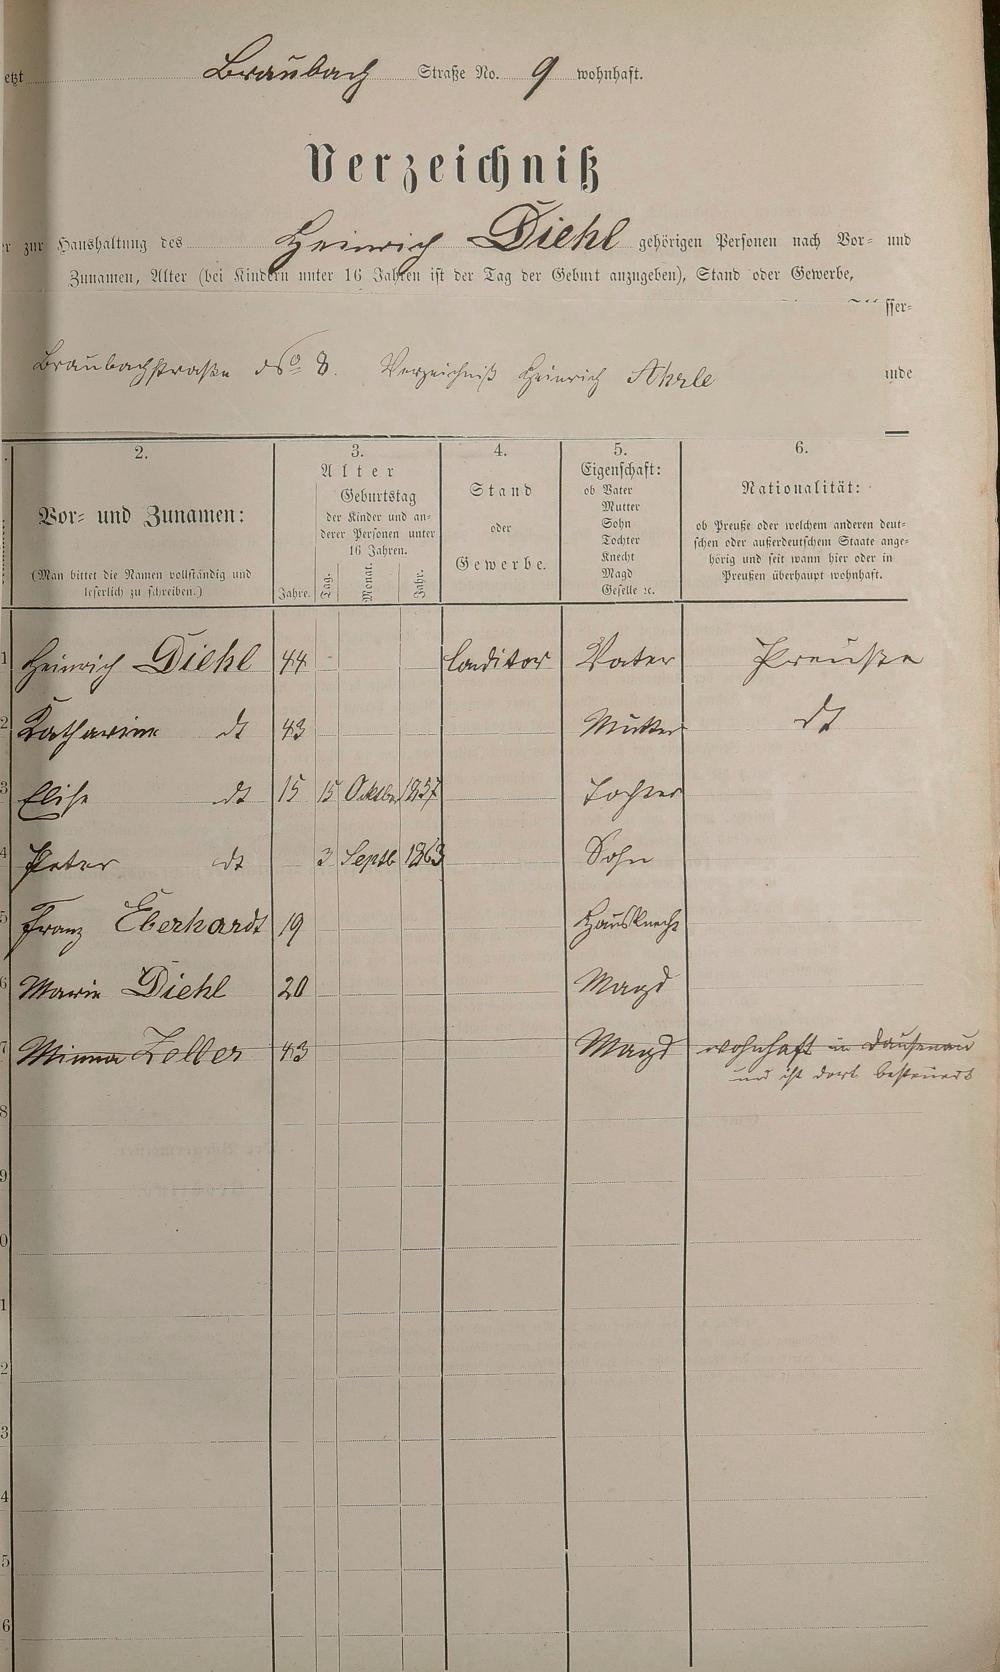 etzt Braubach Straße No. 9 wohnhaft.
Verzeichniß
er zur Haushaltung des Heinrich Diehl gehörigen Personen nach Vor- und
Zunamen, Alter (bei Kindern unter 16 Jahren ist der Tag der Geburt anzugeben), Stand oder Gewerbe,
sser-
Braubachstraße No 8. Verzeichniß Heinrich Ahrle
inde
2. 3. 4. 5. 6.
Vor- und Zunamen:
(Man bittet die Namen vollständig und
leserlich zu schreiben.)
Alter
Jahre.
Geburtstag
der Kinder und an-
derer Personen unter
16 Jahren.
Tag. Monat. Jahr.
Stand
oder
Gewerbe.
Eigenschaft:
ob Vater
Mutter
Sohn
Tochter
Knecht
Magd
Geselle ꝛc.
Nationalität:
ob Preuße oder welchem anderen deut-
schen oder außerdeutschem Staate ange-
hörig und seit wann hier oder in
Preußen überhaupt wohnhaft.
1 Heinrich Diehl 44 Conditor Vater Preuße
2 Katharine dt 43 Mutter dt
3 Elise dt 15 15 Oktbr 1857 Tochter
4 Peter dt 3 Septb 1863 Sohn
5 Franz Eberhardt 19 Hausknecht
6 Marie Diehl 20 Magd
7 Minna Zoller 43 Magd wohnhaft in Dausenau
und ist dort besteuert
8
9
0
1
2
3
4
5
6